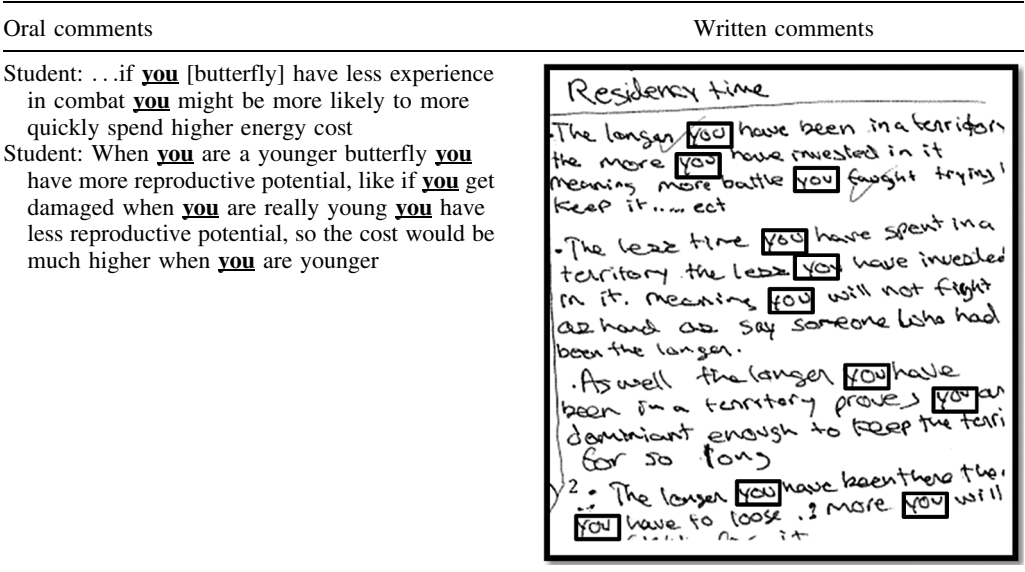 Oral comments
Written comments
Student: ...if you [butterfly] have less experience
in combat you might be more likely to more
quickly spend higher energy cost
Student: When you are a younger butterfly you
have more reproductive potential, like if you get
damaged when you are really young you have
less reproductive potential, so the cost would be
much higher when you are younger
Residency time
•The longer you have been in a territory
the more you have invested in it
meaning more battle you faught trying
keep it..... ect
•The less time you have spent in a
territory the less you have invested
in it. meaning you will not fight
as hard as say someone who had
been the longer.
•As well the longer you have
been in a territory proves you
dominiant enough to keep the terri
for so long
2. The longer you have been there the
you have to loose .. more you will
it